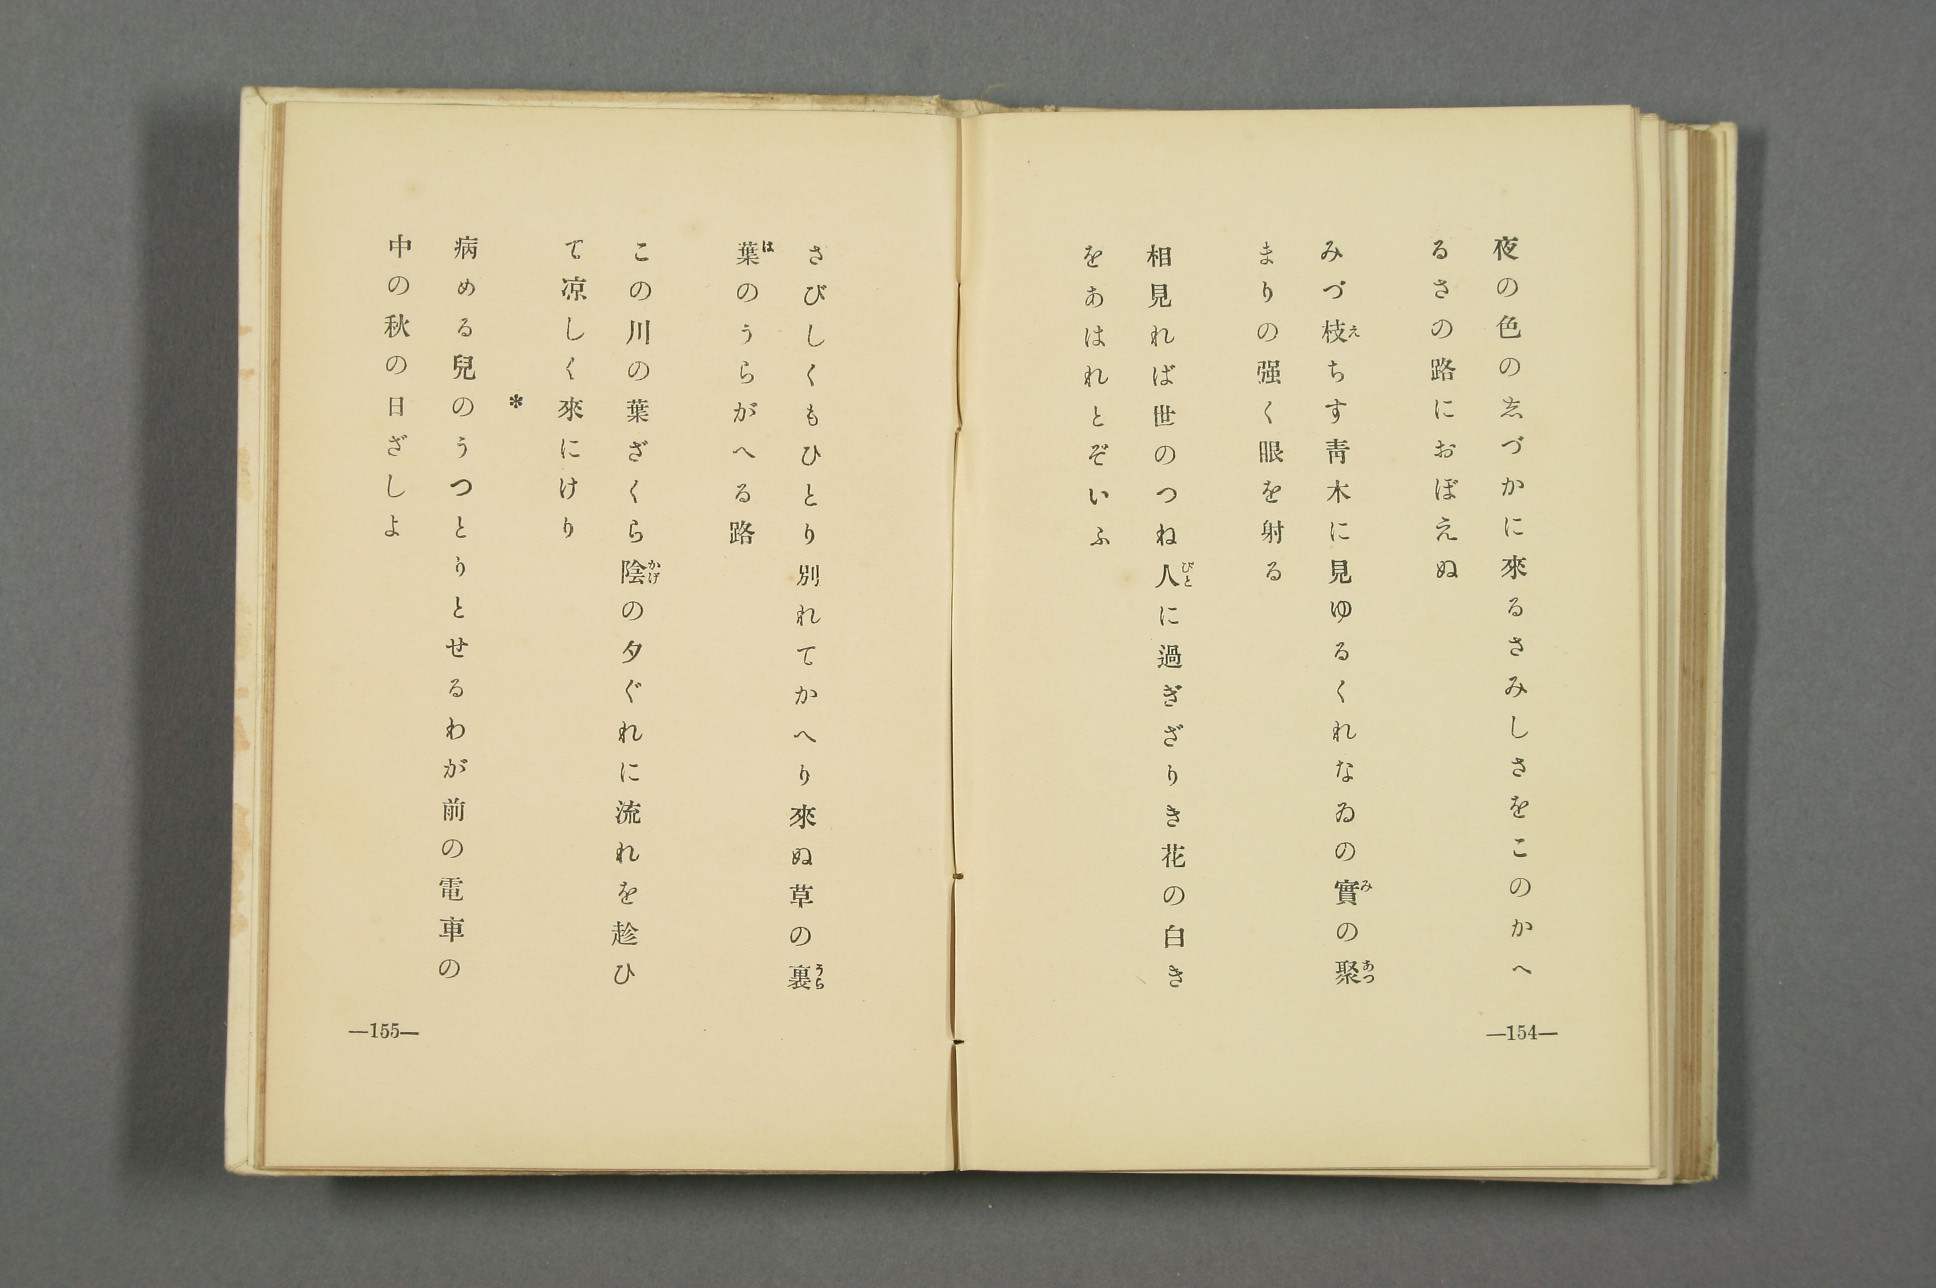 夜の色の志づかに來るさみしさをこのかへ
るさの路におぼえぬ
みづ枝ちす靑木に見ゆるくれなゐの實の聚
まりの强く眼を射る
相見れば世のつね人に過ぎざりき花の白き
をあはれとぞいふ
—154—
さびしくもひとり別れてかへり來ぬ草の裏
葉のうらがへる路
この川の葉ざくら陰の夕ぐれに流れを趁ひ
て凉しく來にけり
*
病める兒のうつとりとせるわが前の電車の
中の秋の日ざしよ
—155—